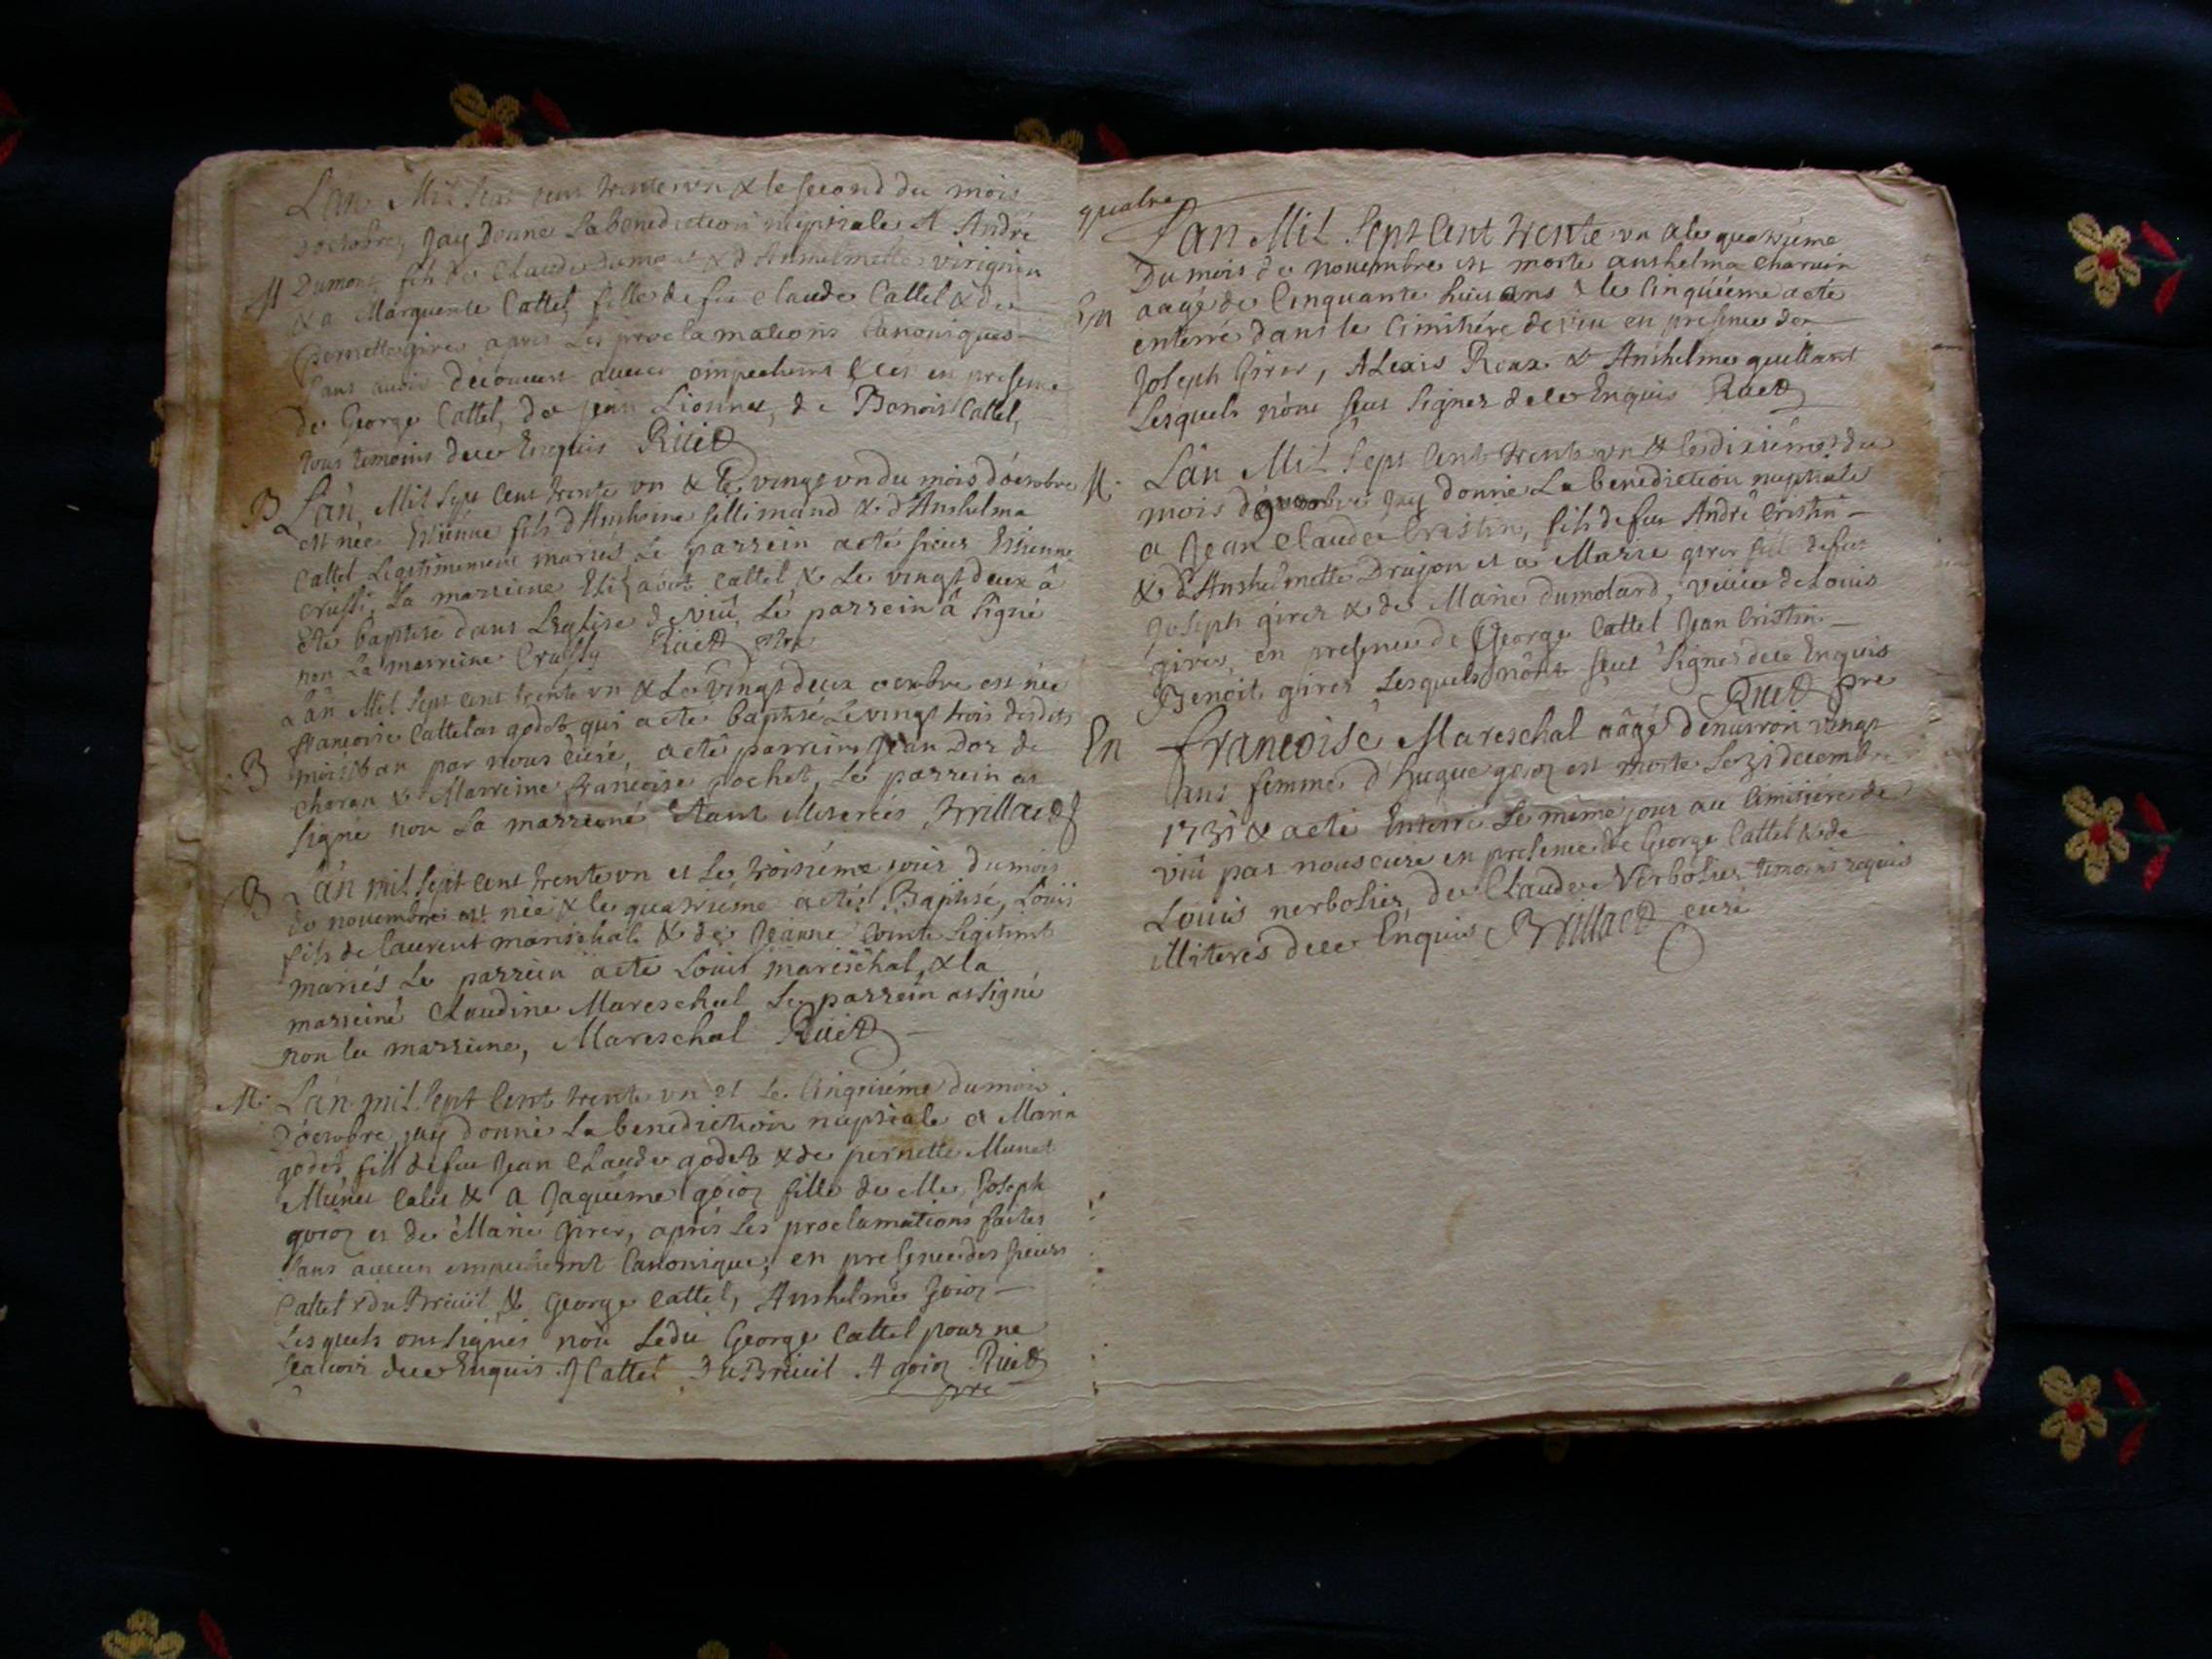 L'an Mil sept cent trente vn & le second du mois
d'octobre, Jay Donné La benediction nuptiale A André
M Dumont fils de Claude dumont & d'Anshelmette virignin
& a Marguerite Cattel fille de feu Claude Cattel & de
pernette girer apres Les proclamations Canoniques
sans avoir decouvert aucun empechement & ce en presence
de George Cattel, de Jean Lionnet, de Benoit Cattel,
tous temoins de ce Enquis Ruied
B L'an Mil sept cent trente vn & le vingt vn du mois d'octobre
est née Estienne fils d'Anthoine sellimand & d'Anshelma
Cattel Legitimement mariés Le parrein a eté sieur Estienne
Crussi, La marreine Elizabet Cattel & Le vingt deux â
eté baptisé dans L'eglise de viû, Le parrein â signé
non La marreine Crussy Ruied ptre
L'an Mil sept cent trente vn & Le vingt deux octobre est née
françoise Cattel as godet qui a eté baptisé Le vingt trois desdits
B mois & an par nous curé, a eté parrein Jean Dor de
charan & Marreine françoise pochet, Le parrein as
signé non La marreine Etant Miterés Brillaed
B L'an mil sept cent trente vn et Le troisiéme jour du mois
de nouembre est née & le quatriéme a eté Baptisé, Louis
fils de laurent mareschal & de Jeanne Comte Legitimt
mariés Le parrein a eté Louis mareschal, & la
marreiné Claudine Mareschal Le parrein as signé
non la marreine, Mareschal Ruied
M. L'an mil sept Cent trente vn et Le Cinquiéme du mois
d'octobre, jay donné La benediction nuptiale a
godet fils de feu Jean Claude godet & de pernette Munet
& A Jaquéme goior fille de Me Joseph
goior et de Marie Girer, aprés Les proclamations faites
sans aucun empechemt Canonique, en presence des sieurs
Cattel & du Breüil & George Cattel, Anshelme Goior
Lesquels ont signés non Ledit George Cattel pour ne
scauoir de ce Enquis J Cattel Du Breüil A goior Ruied
ptre
quatre
L'an Mil Sept Cent trente vn & le quatriéme
Du mois de nouembre est morte anshelma Charuin
En aagé de Cinquante huit ans & le Cinquiéme a eté
enterré dans le Cimitiére de viu en presence de
Joseph Girer, ALexis Roux & Anshelme guillant
Lesquels nont sceut signer de ce Enquis Ruied
M. L'an Mil Sept Cent trente vn & le dixiéme du
mois Jay donné La benediction nuptiale
a Jean Claude Cristin, fils de feu André Cristin
& d'Anshelmette Drujon et a Marie girer fille de feu
Joseph girer & de Marie dumolard, veuue de Louis
girer, en presence de George Cattel Jean Cristin
Benoit girer Lesquels nont sceut signer de ce Enquis
Ruied ptre
En françoise Mareschal aâgé d'enuiron vingt
ans femme d'hugue goior est morte Le 31 decembre
1731 & a eté Enterré Le méme jour au Cimitiére de
viû par nous curé en presence de George Cattel & de
Louis nerbolier, de Claude Nerbolier temoins requis
illiterés de ce Enquis Brillaed curé